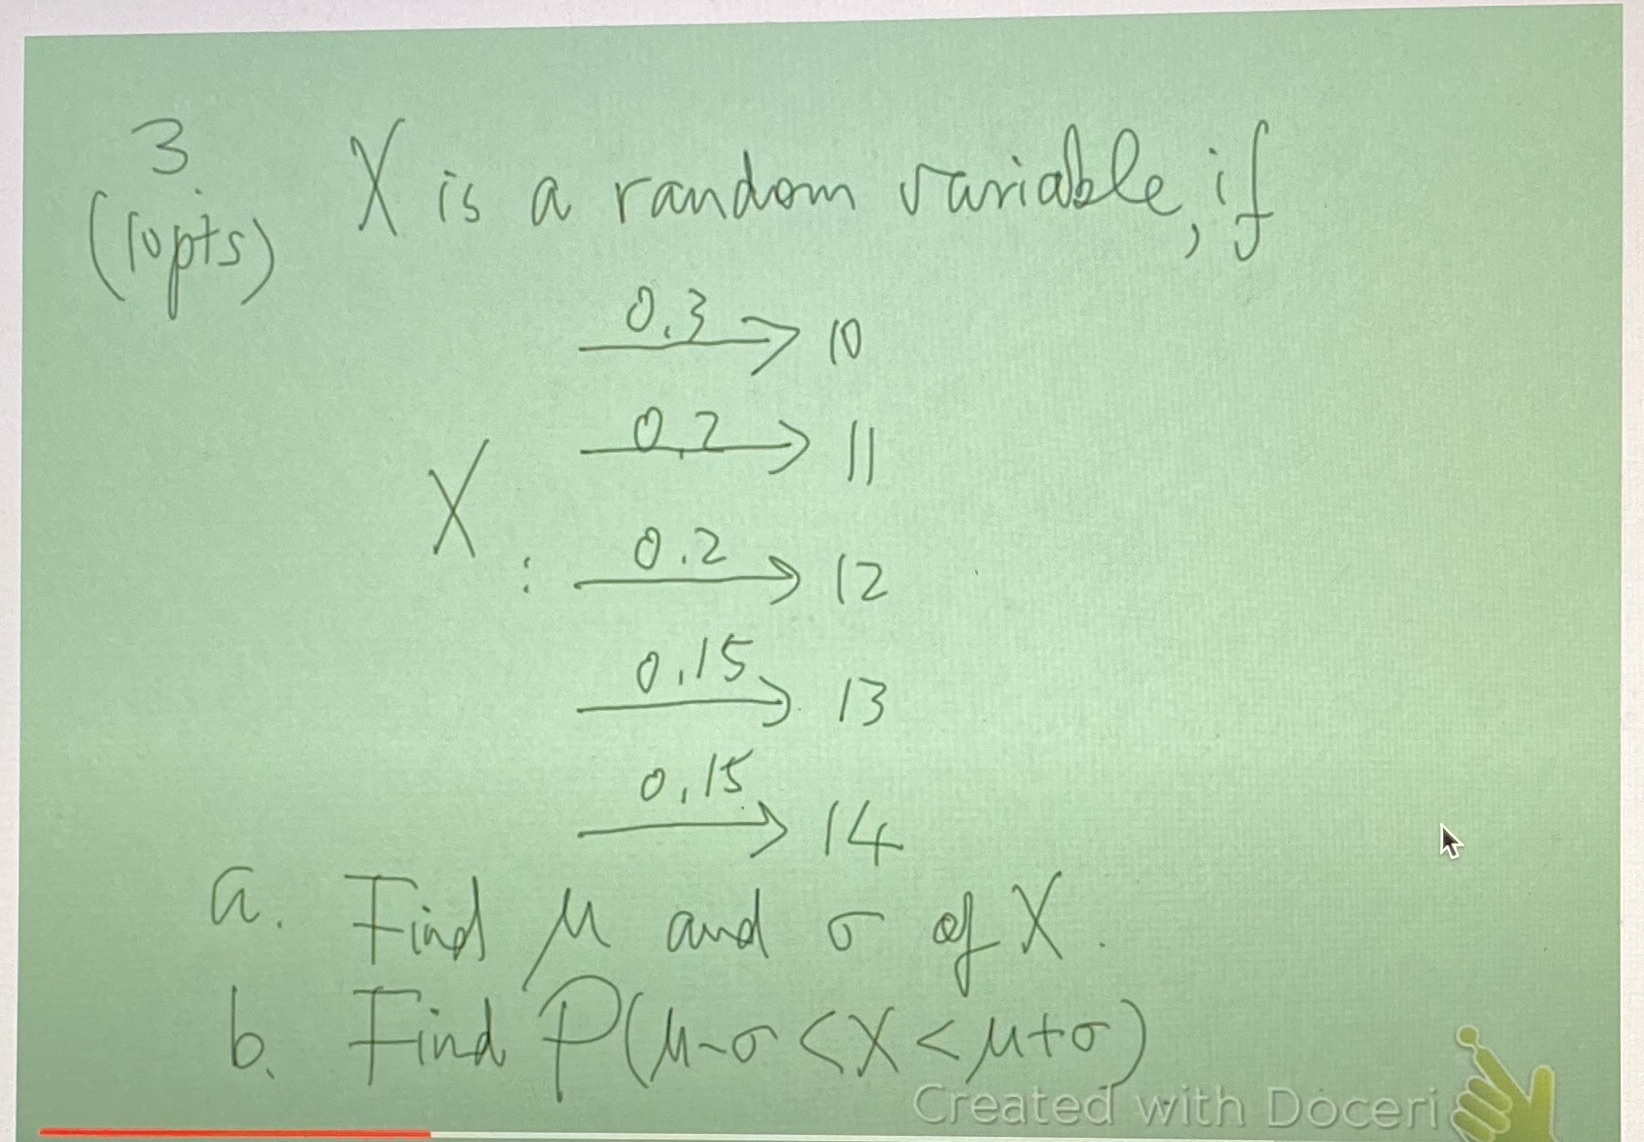 3.
(10pts)
X is a random variable, if
0.3 → 10
0.2 → 11
X : 0.2 → 12
0.15 → 13
0.15 → 14
a. Find μ and σ of X.
b. Find P(μ-σ < X < μ+σ)
Created with Doceri